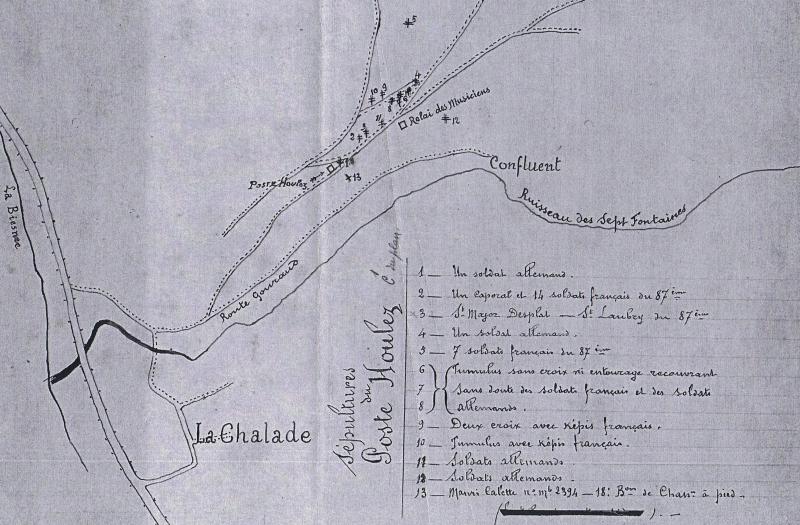 5
4
10 9
8
Relai des Musiciens
12
2
Poste Houlez
13
Confluent
La Biesme
Ruisseau des Sept Fontaines
Route Gouraud
La Chalade
Sépultures
du
Poste Houlez
du plan
1 — Un soldat allemand.
2 — Un Caporal et 14 soldats français du 87ième
3 — St Major Desplat — St Laubry du 87ième
4 — Un soldat allemand.
5 — 7 soldats français du 87ième
6 Tumulus sans croix ni entourage recouvrant
7 sans doute des soldats français et des soldats
8 allemands.
9 — Deux croix avec képis français.
10 — Tumulus avec képis français.
11 — Soldats allemands
12 — Soldats allemands.
13 — Calette n° mle 2394 — 18e Bon de Chass. à pied —